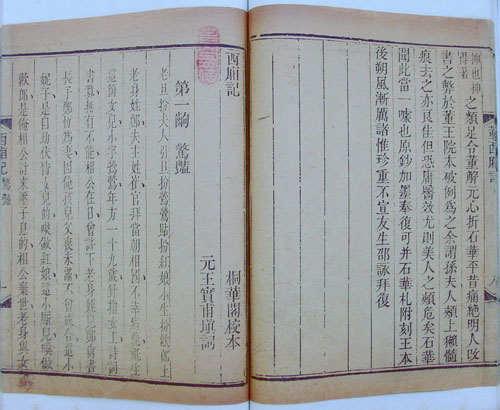 之類足令董解元心折石華平昔痛絶明人改
書之弊於董王院本破例爲之余謂孫夫人頰上獺髓
痕去之亦良佳但恐庸醫效尤則美人之頰危矣石華
聞此當一噱也原鈔加墨奉復可并石華札附刻王本
後朔風漸厲諸惟珍重不宣友生邵詠拜復
西廂記
桐華閣校本
第一齣 驚豔
元王實甫填詞
老旦扮夫人引旦扮鶯鶯貼扮紅娘小生扮歡郎上
老身姓鄭夫主姓崔官拜當朝相國不幸病薨祗生
這箇女兒小字鶯鶯年方一十九歲針指女工詩詞
書算無有不能相公在日曾許下老身姪兒鄭尚書
長子鄭恒爲妻因俺孩兒父喪未滿不曾成合這小
妮子是自幼伏侍女兒的喚做紅娘這小廝兒喚做
歡郎是俺相公討來壓子息的相公棄世老身與女孩
西廂記 驚豔 一